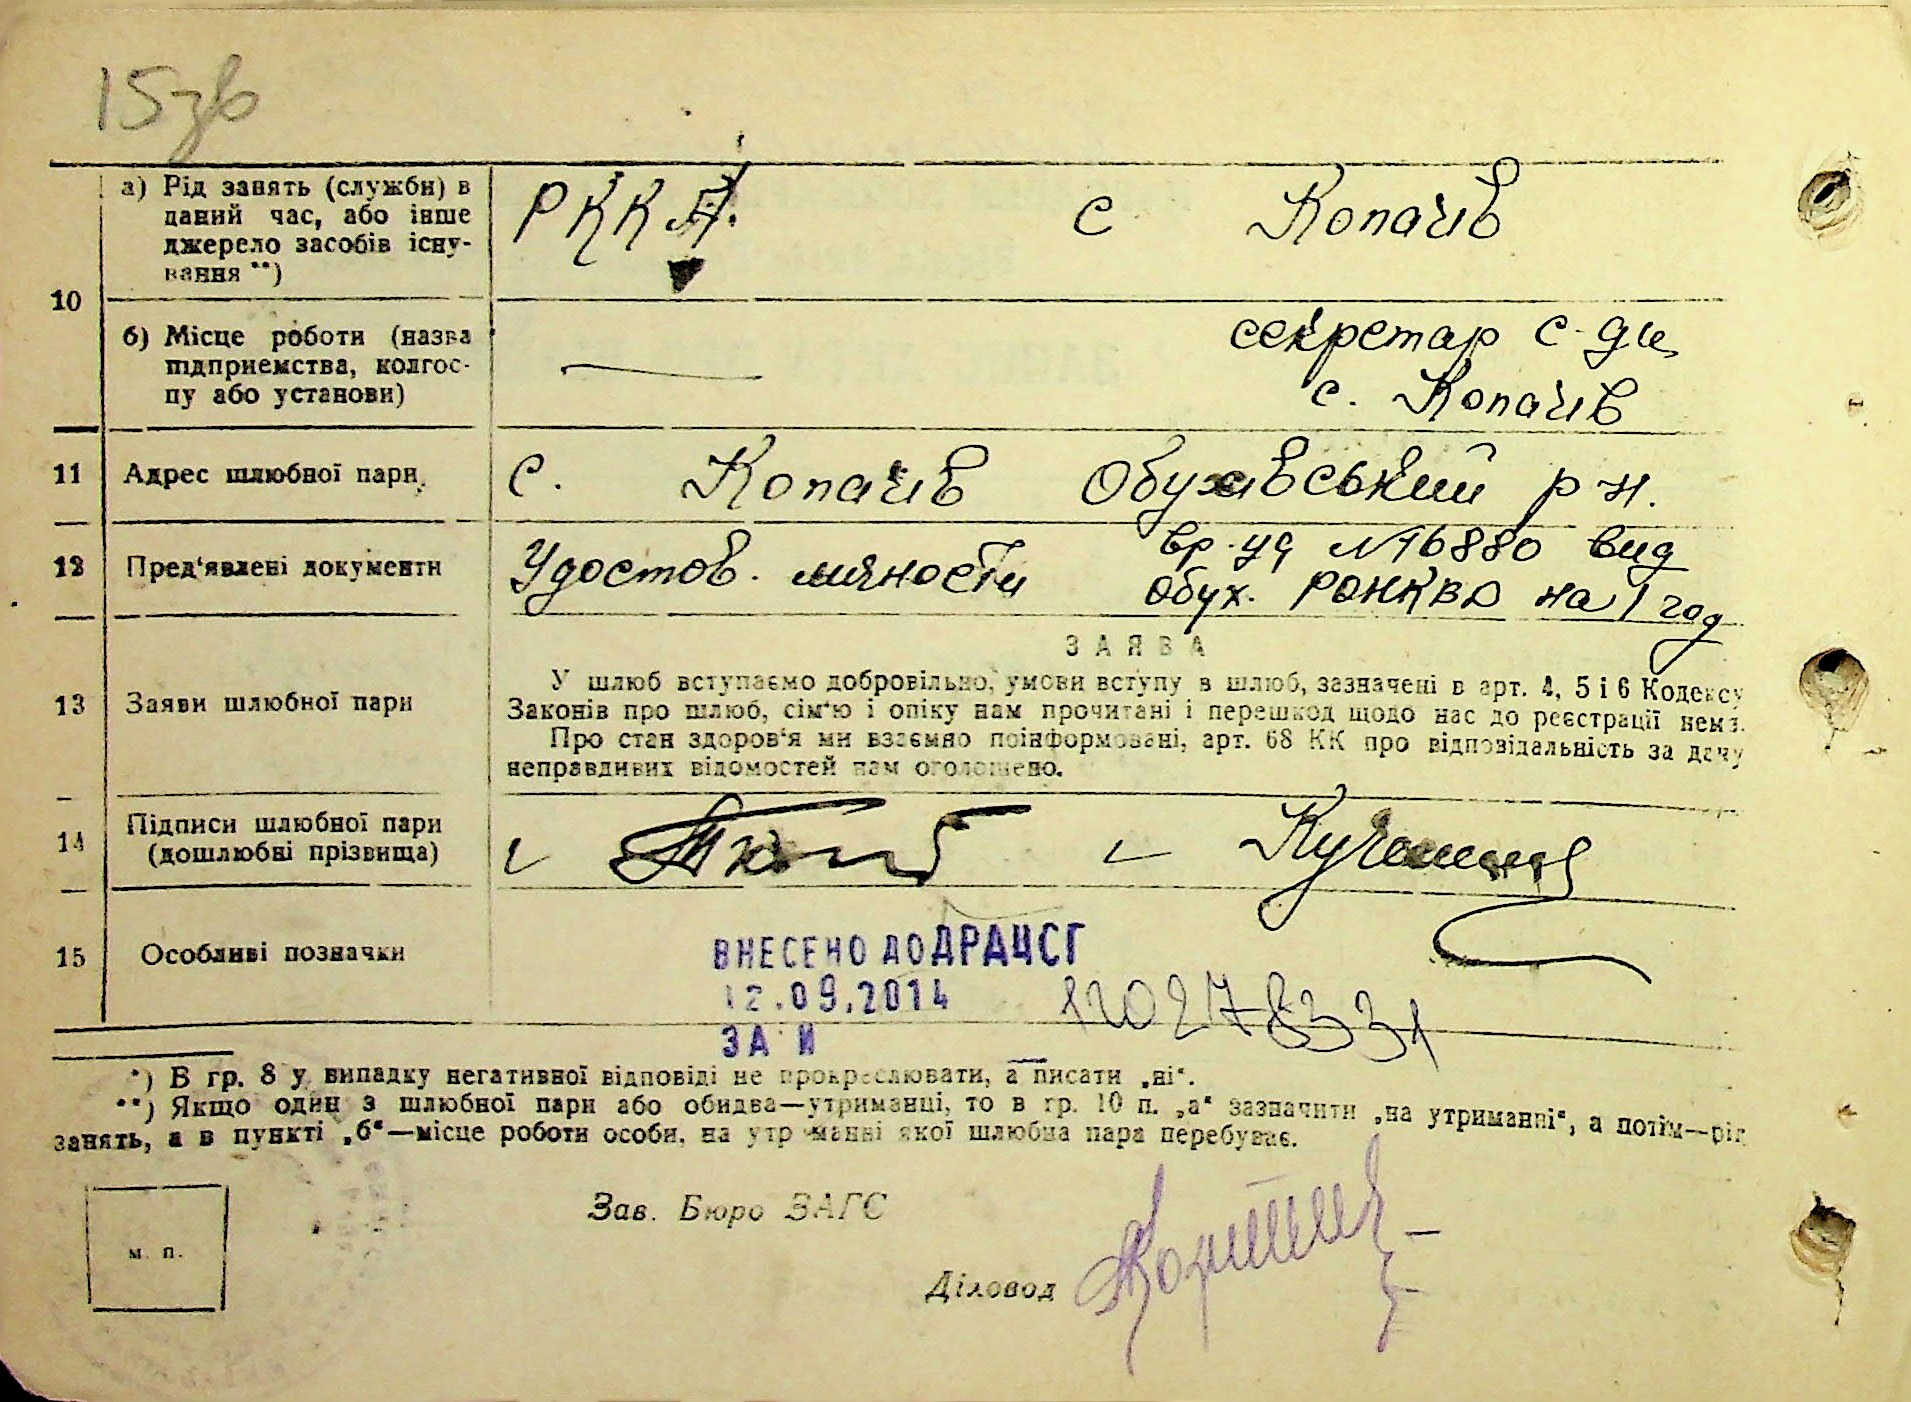 15зв
10
а) Рід занять (служби) в
даний час, або інше
джерело засобів існу-
вання **)
РККА.
с Копачів
б) Місце роботи (назва
підприємства, колгос-
пу або установи)
секретар с-ди
с. Копачів
11
Адрес шлюбної пари
с. Копачів Обухівський р н.
12
Пред'явлені документи
Удостов. личности
вр. уд №16880 вид
Обух. РОНКВД на 1 год
ЗАЯВА
13
Заяви шлюбної пари
У шлюб вступаємо добровільно, умови вступу в шлюб, зазначені в арт. 4, 5 і 6 Кодексу
Законів про шлюб, сім'ю і опіку нам прочитані і перешкод щодо нас до реєстрації нема.
Про стан здоров'я ми взаємно поінформовані, арт. 68 КК про відповідальність за дачу
неправдивих відомостей нам оголошено.
14
Підписи шлюбної пари
(дошлюбні прізвища)
15
Особливі позначки
ВНЕСЕНО ДО ДРАЦСГ
12.09.2014
ЗА И
*) В гр. 8 у випадку негативної відповіді не прокреслювати, а писати „ні“.
**) Якщо один з шлюбної пари або обидва—утриманці, то в гр. 10 п. „а“ зазначити „на утриманні“, а потім—рід
занять, а в пункті „б“—місце роботи особи, на утриманні якої шлюбна пара перебуває.
м. п.
Зав. Бюро ЗАГС
Діловод